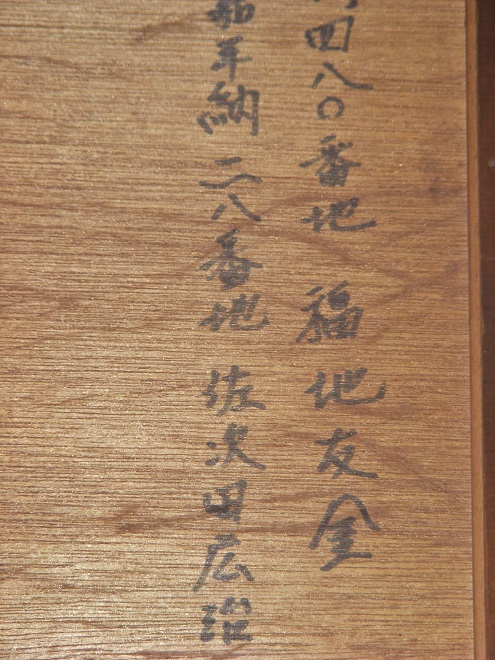 四八〇番地 福地友金
嘉手納 二八番地 佐次田広